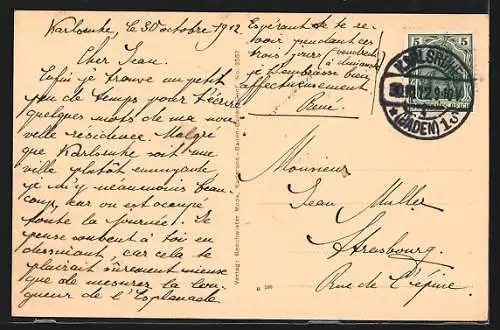 Karlsruhe, le 30 octobre 1912.
Cher Jean.
Enfin je trouve un petit
peu de temps pour t'écrire
quelques mots de ma nou-
velle residence. Malgré
que Karlsruhe soit une
ville plutôt ennuyante
je m'y néaumoins beau-
coup, kar on est occupé
toute la journée. Je
pense souvent à toi en
dessinant, car cela te
plairait sûrement mieux
que de mesurer la lon-
gueur de l'Esplanade.
Espérant de te re-
voir pendant ces
trois jours (vendredi
à dimanche)
je t'embrasse bien
affectueusement
René.
Verlag: Geschwister Moos, Karlsruhe
5 5
KARLSRUHE
30.10.12.9-10V
(BADEN) 1.
Monsieur
Jean Muller
Strasbourg.
Rue de l'épine.